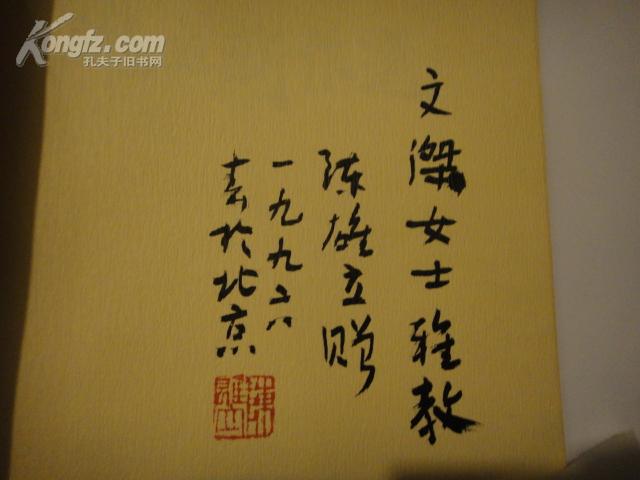 Kongfz.com
孔夫子旧书网
文傑女士雅教
陈雄立赠
一九九六
春於北京